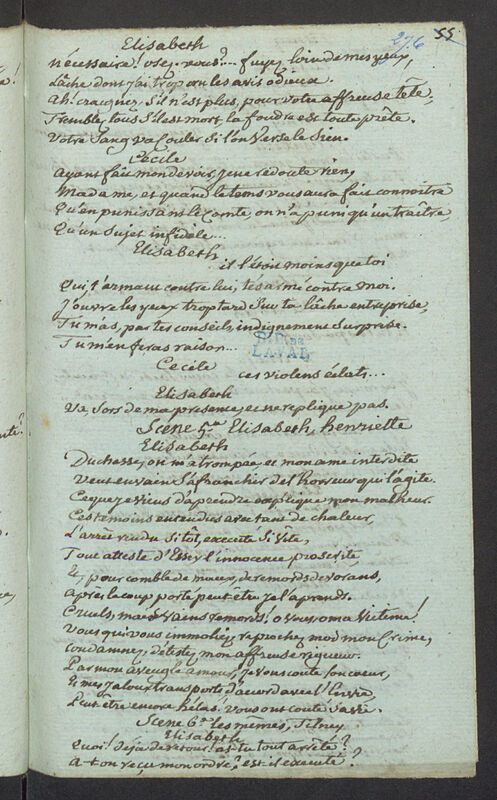 276 55
Elisabeth
nécessaire! osez-vous?... fuyez loin de mes yeux,
Lâche dont j'ai trop cru les avis odieux.
ah! craignez, s'il n'est plus, pour votre affreuse tête,
Tremblez tous s'il est mort la foudre est toute prête.
votre sang va couler si l'on verse le sien.
Cécile
ayant fait mon devoir, je ne redoute rien,
Madame, et quand le tems vous aura fait connoitre
Qu'en punissant le comte, on n'a puni qu'un traître
Qu'un sujet infidèle...
Elisabeth
il l'étoit moins que toi
Qui, t'armant contre lui, t'es armé contre moi.
J'ouvre les yeux trop tard sur ta lâche entreprise,
Tu m'as, par tes conseils, indignement surprise.
Tu m'en feras raison...
BIB DE
LAVAL
Cecile
ces violens éclats...
Elisabeth
Va, sors de ma presence, et ne replique pas.
Scene 5e Elisabeth, henriette
Elisabeth
Duchesse, on m'a trompée, et mon ame interdite
Veut en vain s'affranchir de l'horreur qui l'agite.
Ce que je viens d'aprendre explique mon malheur.
Ces temoins entendus avec tant de chaleur,
L'arrêt rendu si tôt, executé si vite,
Tout atteste d'Essex l'innocence proscrite
Et, pour comble de maux, de remords devorans,
après le coup porté peut etre je l'aprends.
Cruels, mais vains remords! o vous, o ma victime!
Vous qui vous immolez, reprochez moi mon crime,
condamnez, détestez mon affreuse rigueur.
Par mon aveugle amour, je vous coute son coeur,
Et mes jaloux transports d'acord avec l'Envie,
Peut être encore hélas! vous ont couté sa vie.
Scene 6e les mêmes, Tilney
Elisabeth
Quoi! déja de retour! as-tu tout arrêté?
a-t-on reçu mon ordre? est il executé?